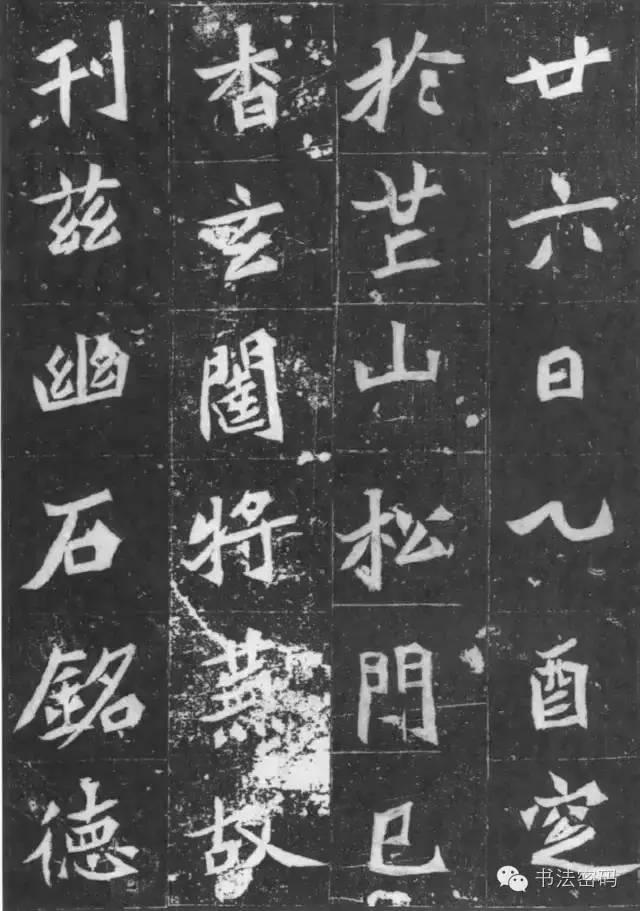 廿六日乙酉窆
於芒山松門已
杳玄閨將蕪故
刊茲幽石銘德
书法密码